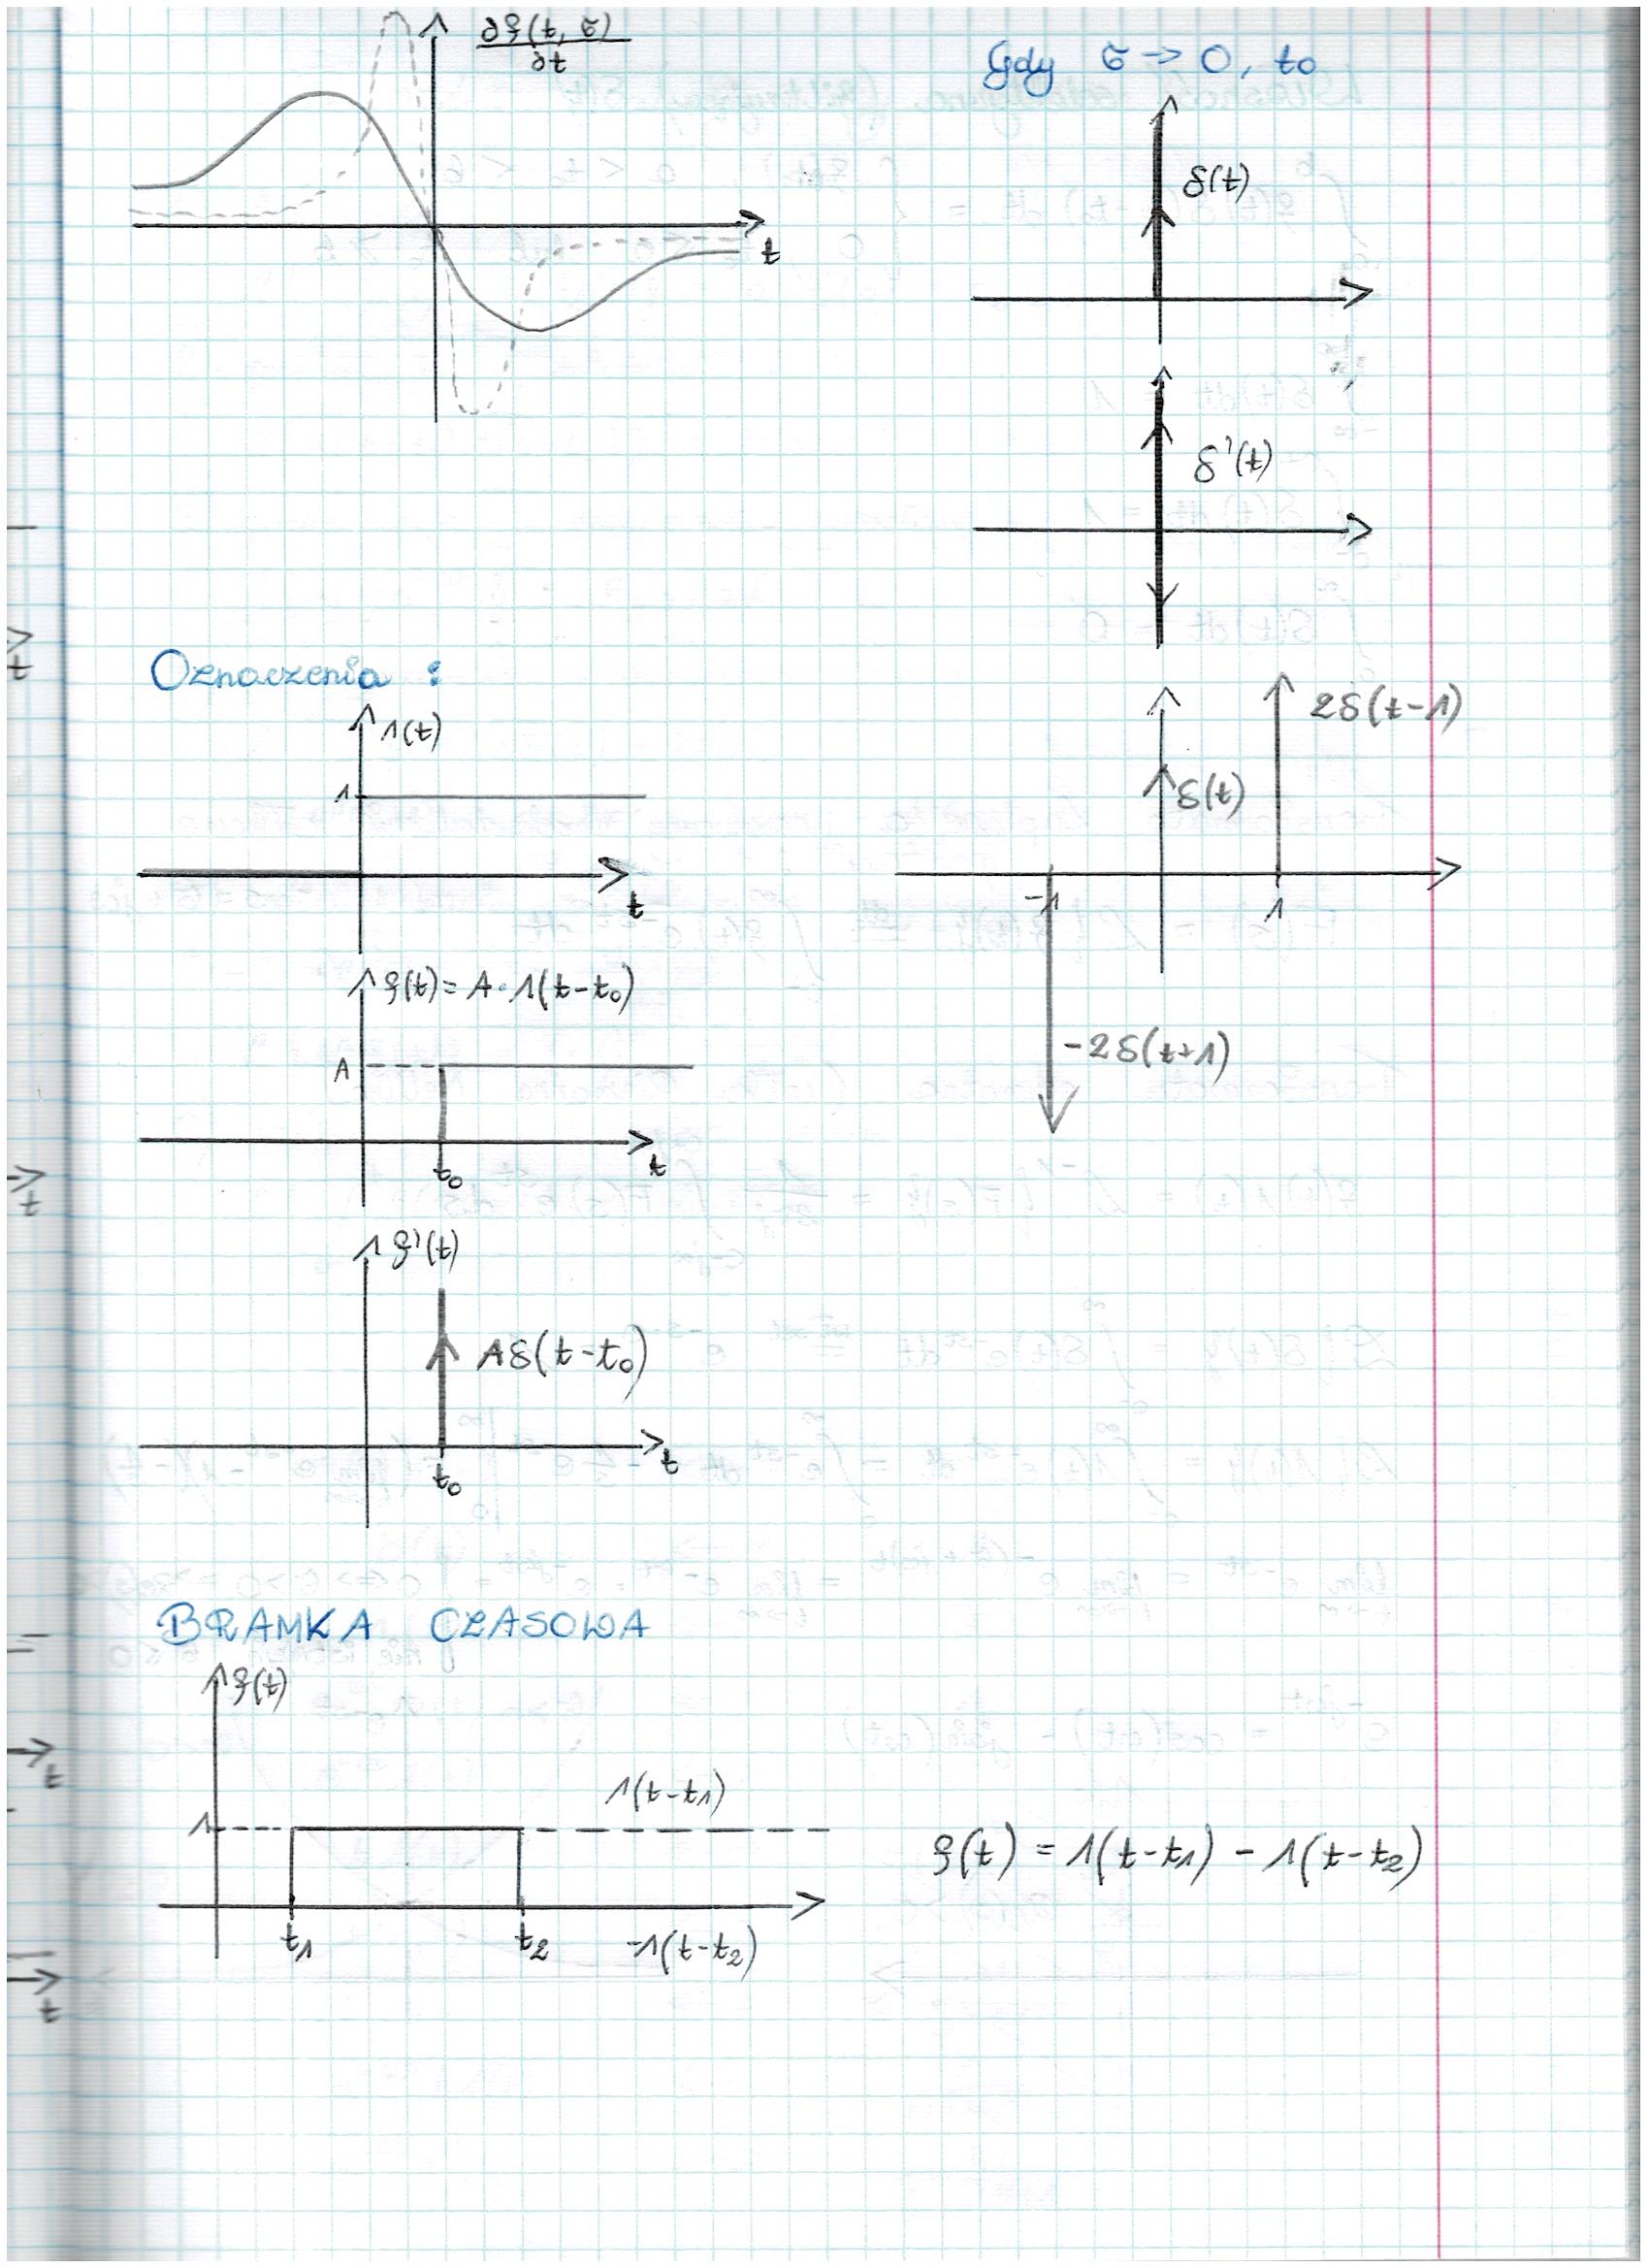 ∂f(t, σ)
∂t
t
Gdy σ → 0, to
δ(t)
δ'(t)
Oznaczenia :
1(t)
1
t
f(t) = A·1(t-t₀)
A
t₀
t
f'(t)
Aδ(t-t₀)
t₀
t
2δ(t-1)
δ(t)
-1
1
-2δ(t+1)
BRAMKA CZASOWA
f(t)
1(t-t₁)
1
t₁
t₂
-1(t-t₂)
f(t) = 1(t-t₁) - 1(t-t₂)
t
t
t
t